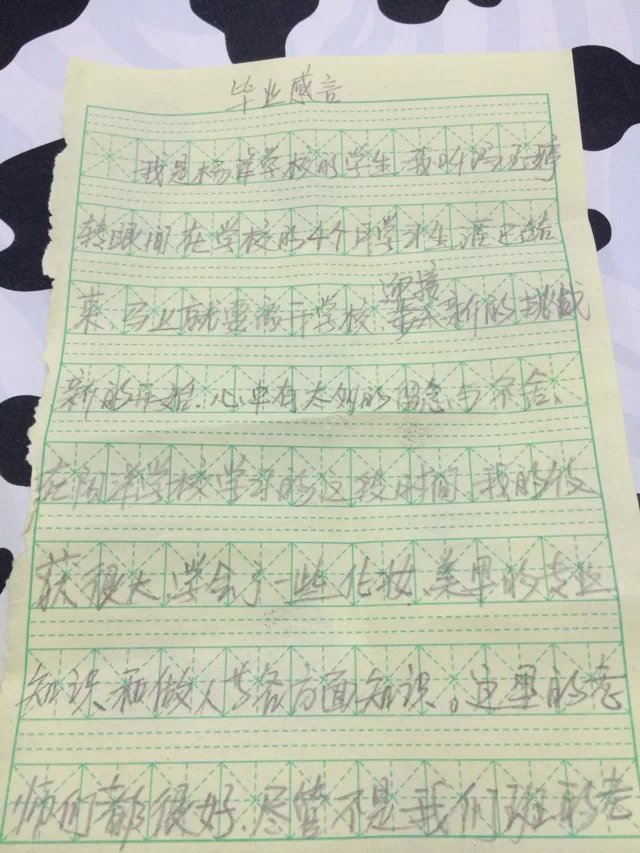 毕业感言
我是杨岸学校的学生 我叫冯玉婷
转眼间在学校的4个月学习生涯已结
束、马上就要离开学校、迎接新的挑战
新的开始.心中有太多的留念与不舍、
在阳岸学校学习的这段时间 我的收
获很大、学会了一些化妆、美里的专业
知识、和做人等各方面知识。这里的老
师们都很好、尽管不是我们班的老